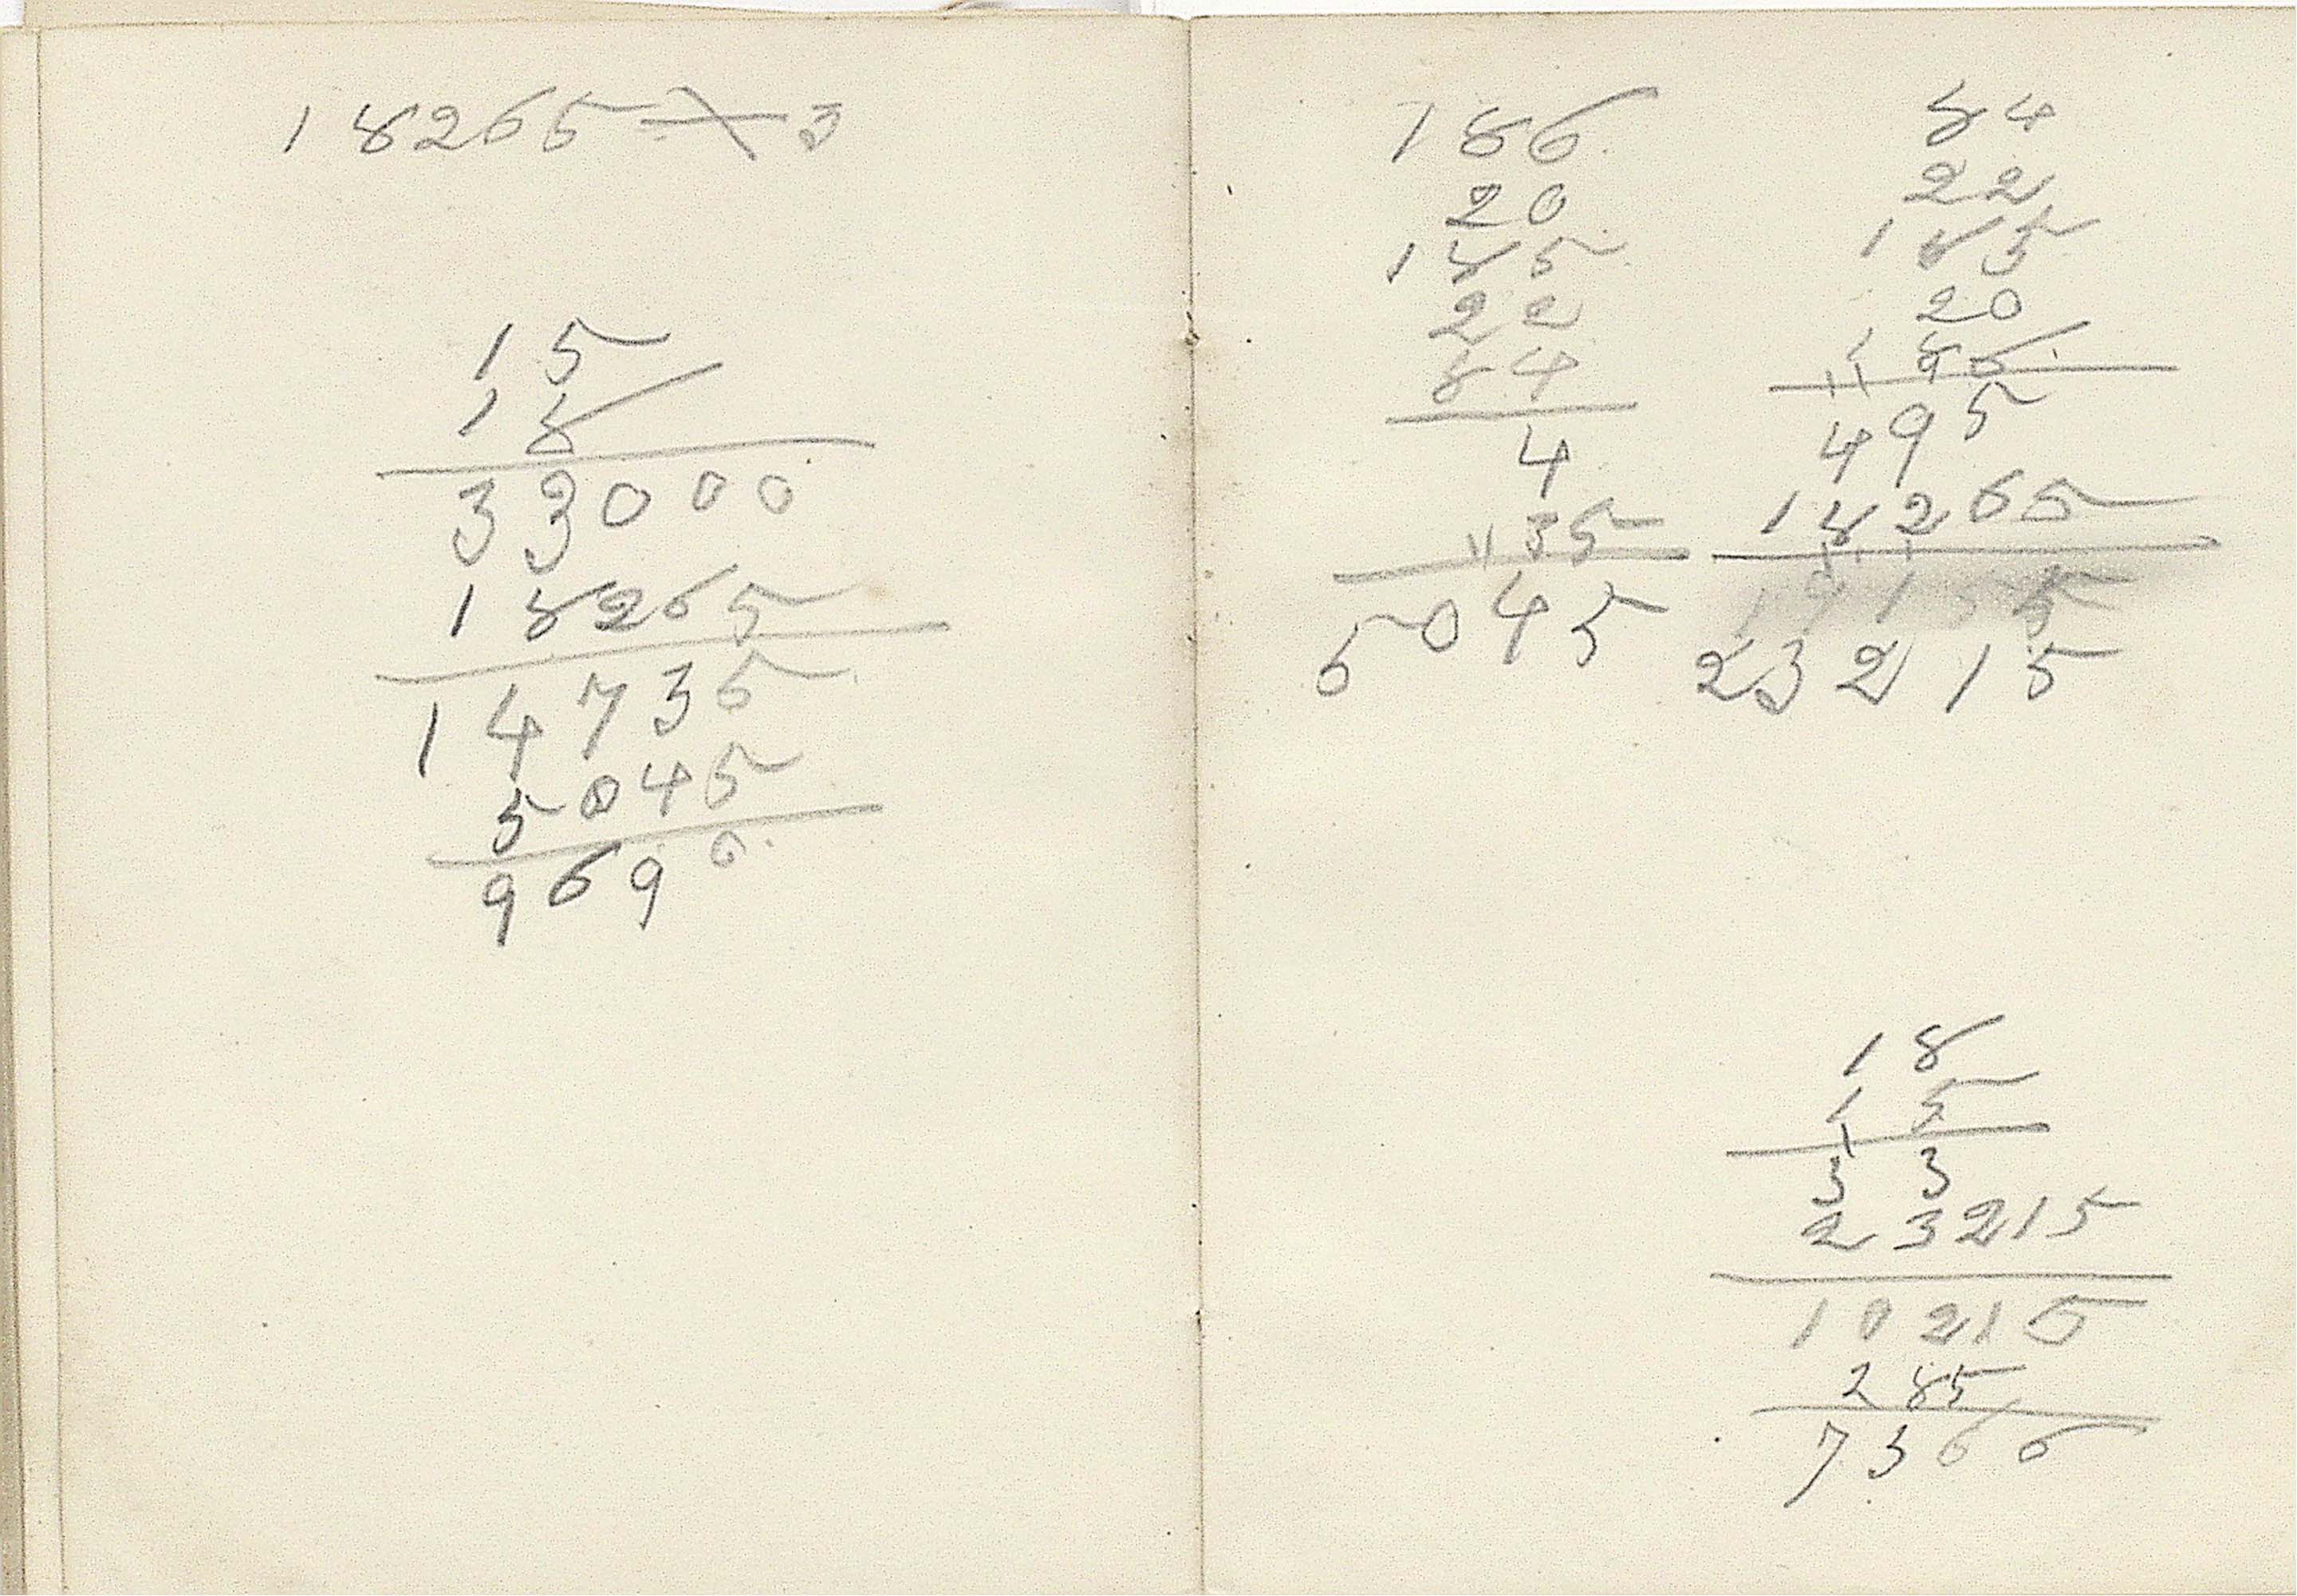 18265 3
15
18
33000
18265
14735
5045
9690
186
20
185
22
84
4
35
5045
84
22
185
20
186
495
18265
23215
18
15
33
23215
10215
285
7366